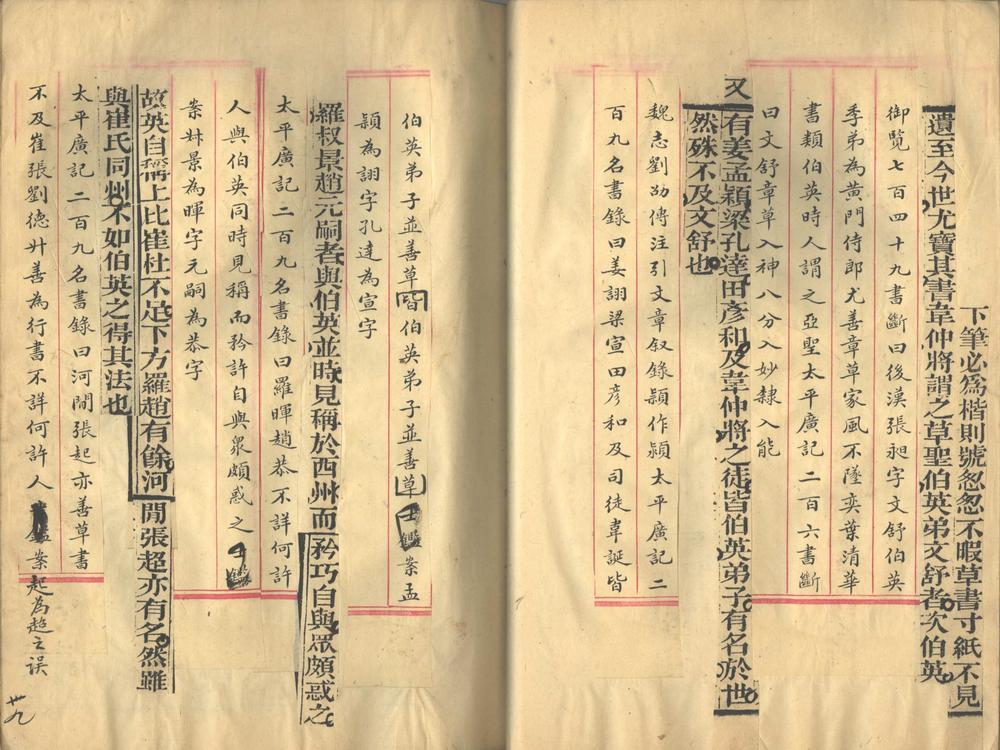 下筆必爲楷則號怱怱不暇草書寸紙不見
遺至今世尤寶其書韋仲將謂之草聖伯英弟文舒者次伯英
御覽七百四十九書斷曰後漢張昶字文舒伯英
季弟為黃門侍郎尤善章草家風不墜奕葉清華
書類伯英時人謂之亞聖太平廣記二百六書斷
曰文舒章草入神八分入妙隸入能
又有姜孟穎梁孔達田彥和及韋仲將之徒皆伯英弟子有名於世
然殊不及文舒也
魏志劉劭傳注引文章叙錄穎作熲太平廣記二
百九名書錄曰姜詡梁宣田彥和及司徒韋誕皆
伯英弟子並善草皆伯英弟子並善草士鑑案孟
穎為詡字孔達為宣字
羅叔景趙元嗣者與伯英並時見稱於西州而矜巧自與眾頗惑之
太平廣記二百九名書錄曰羅暉趙恭不詳何許
人與伯英同時見稱而矜許自與眾頗惑之士鑑
案叔景為暉字元嗣為恭字
故英自稱上比崔杜不足下方羅趙有餘河閒張超亦有名然雖
與崔氏同州不如伯英之得其法也
太平廣記二百九名書錄曰河閒張起亦善草書
不及崔張劉德升善為行書不詳何許人鑑案起為超之誤
卅九